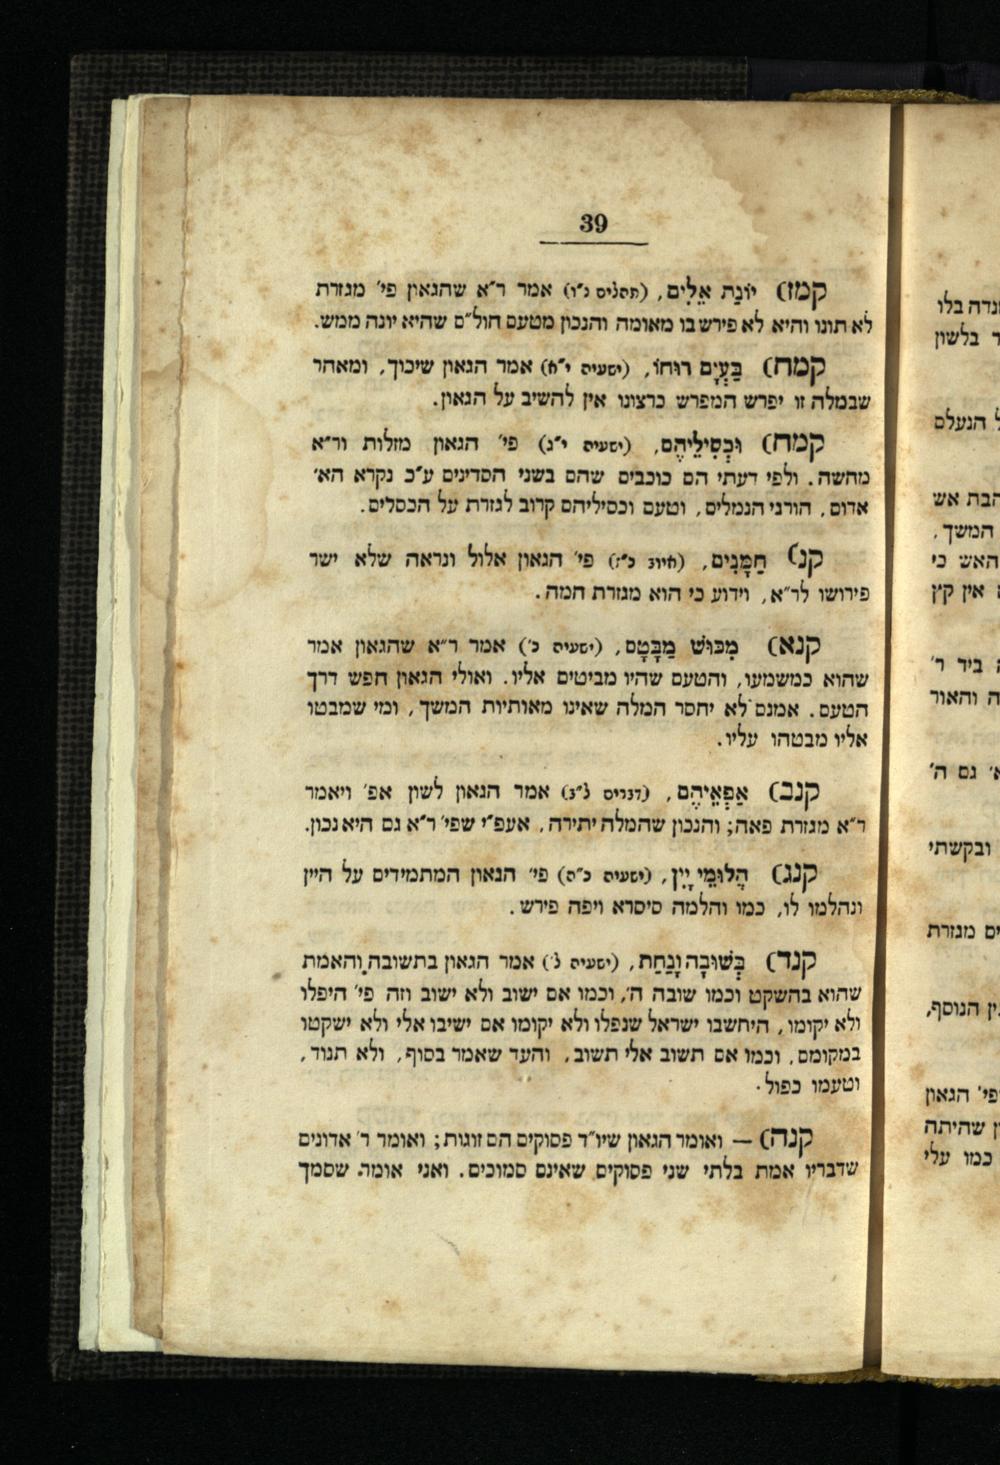 39
קמז) יוֹנַת אֵלִים, (תהלים נ״ו) אמר ר״א שהגאון פי׳ מגזרת
לא תונו והיא לא פירש בו מאומה והנכון מטעם חול״ם שהיא יונה ממש.
קמח) בַּעְיָם רוּחוֹ, (ישעיה י״א) אמר הגאון שיכוך, ומאחר
שבמלה זו יפרש המפרש כרצונו אין להשיב על הגאון.
קמח) וּכְסִילֵיהֶם, (ישעיה י״ג) פי׳ הגאון מזלות ור״א
מחשה. ולפי דעתי הם כוכבים שהם בשני הסדינים ע״כ נקרא הא׳
אדום, הורגי הגמלים, וטעם וכסיליהם קרוב לגזרת על הכסלים.
קנ) חַמָּנִים, (איוב כ״ז) פי׳ הגאון אלול ונראה שלא ישר
פירושו לר״א, וידוע כי הוא מגזרת חמה.
קנא) מִכּוּשׁ מַבָּטָם, (ישעיה כ׳) אמר ר״א שהגאון אמר
שהוא כמשמעו, והטעם שהיו מביטים אליו. ואולי הגאון חפש דרך
הטעם. אמנם לא יחסר המלה שאינו מאותיות המשך, ומי שמבטו
אליו מבטהו עליו.
קנב) אַפְאֵיהֶם, (דברים ל״ב) אמר הגאון לשון אפ׳ ויאמר
ר״א מגזרת פאה; והנכון שהמלה יתירה, אעפ״י שפי׳ ר״א גם היא נכון.
קנג) הֲלוּמֵי יָיִן, (ישעיה כ״ח) פי׳ הגאון המתמידים על היין
ונהלמו לו, כמו והלמה סיסרא ויפה פירש.
קנד) בְּשׁוּבָה וָנַחַת, (ישעיה ל׳) אמר הגאון בתשובה, והאמת
שהוא בהשקט וכמו שובה ה׳, וכמו אם ישוב ולא ישוב וזה פי׳ היפלו
ולא יקומו, היחשבו ישראל שנפלו ולא יקומו אם ישיבו אלי ולא ישקטו
במקומם, וכמו אם תשוב אלי תשוב, והעד שאמר בסוף, ולא תנוד,
וטעמו כפול.
קנה) — ואומר הגאון שיו״ד פסוקים הם זוגות; ואומר ר׳ אדונים
שדבריו אמת בלתי שני פסוקים שאינם סמוכים. ואני אומר, שסמך
נדה בלו
ר בלשון
ל הנעלם
הבת אש
המשך,
האש כי
אין קץ
ביד ר׳
ה והאור
גם ה׳
ובקשתי
ים מגזרת
הנוסף,
פי׳ הגאון
שהיתה
כמו עלי